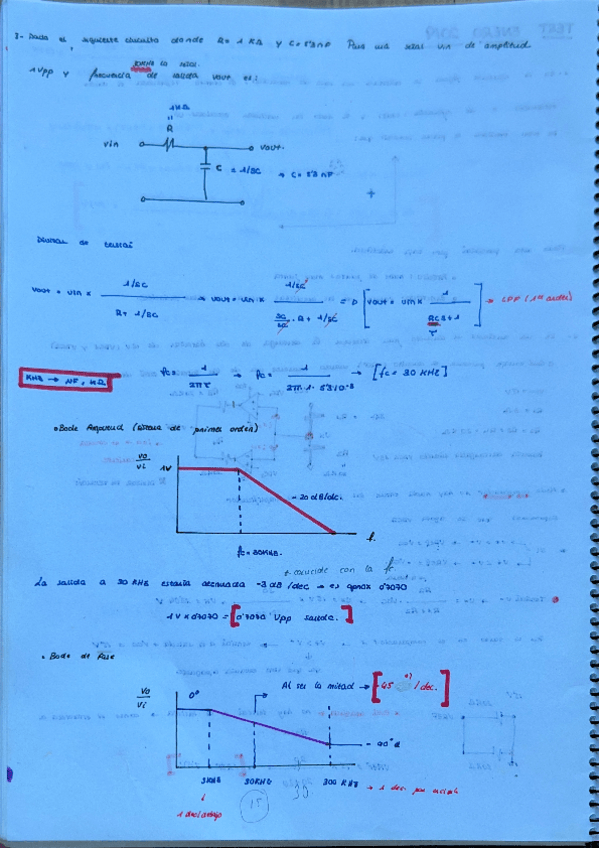 3- Dado el siguiente circuito donde R= 1 KΩ y C= 5'3 nF Para una señal vin de amplitud
1Vpp y frecuencia de salida vout es:
1KΩ
R
vin
vout
C = 1/SC → C= 5'3 nF
Divisor de tensión
vout = vin x 1/SC / R + 1/SC → vout = vin x 1/SC / SC/SC · R + 1/SC => [vout = vin x 1 / RCS + 1] → LPF (1er orden)
τ
KHz → nF, KΩ
fc = 1 / 2πτ → fc = 1 / 2π · 1 · 5'3·10⁻³ → [fc = 30 KHz]
• Bode Amplitud (sistema de primer orden)
vo/vi
1V
- 20 dB/dc.
f.
fc = 30KHz.
coincide con la fc
La salida a 30 KHz estaría atenuada -3 dB /dec → es aprox 0'7070
1V x 0'7070 = [0'7070 Vpp salida.]
• Bode de Fase
Vo/Vi
0º
Al ser la mitad → [-45 º /dec.]
- 90º
3KHz
30KHz
300 KHz → 1 dec. por encima
1 dec abajo